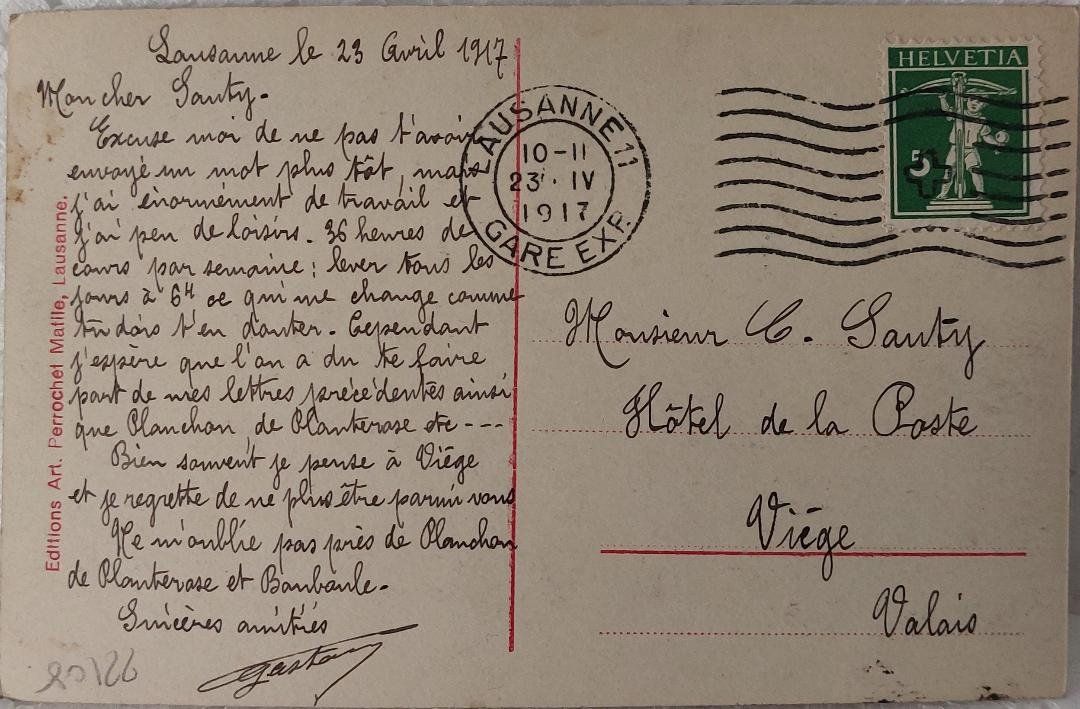 Lausanne le 23 Avril 1917
Mon cher Sauty-
Excuse moi de ne pas t'avoir
envoyé un mot plus tôt, mais
j'ai énormément de travail et
j'ai peu de loisirs. 36 heures de
cours par semaine; lever tous les
jours à 6H ce qui me change comme
tu dois t'en douter. Cependant
j'espère que l'on a du te faire
part de mes lettres précédentes ainsi
que Planchon, de Planterose etc ---
Bien souvent je pense à Viége
et je regrette de ne plus être parmi vous
Ne m'oublie pas près de Planchon
de Planterose et Banbanle-
Sincères amitiés
Gaston
20/26
Editions Art. Perrochet Matile, Lausanne.
LAUSANNE 11
10-11
23. IV
1917
GARE EXP.
HELVETIA
5
Monsieur C. Sauty
Hôtel de la Poste
Viége
Valais